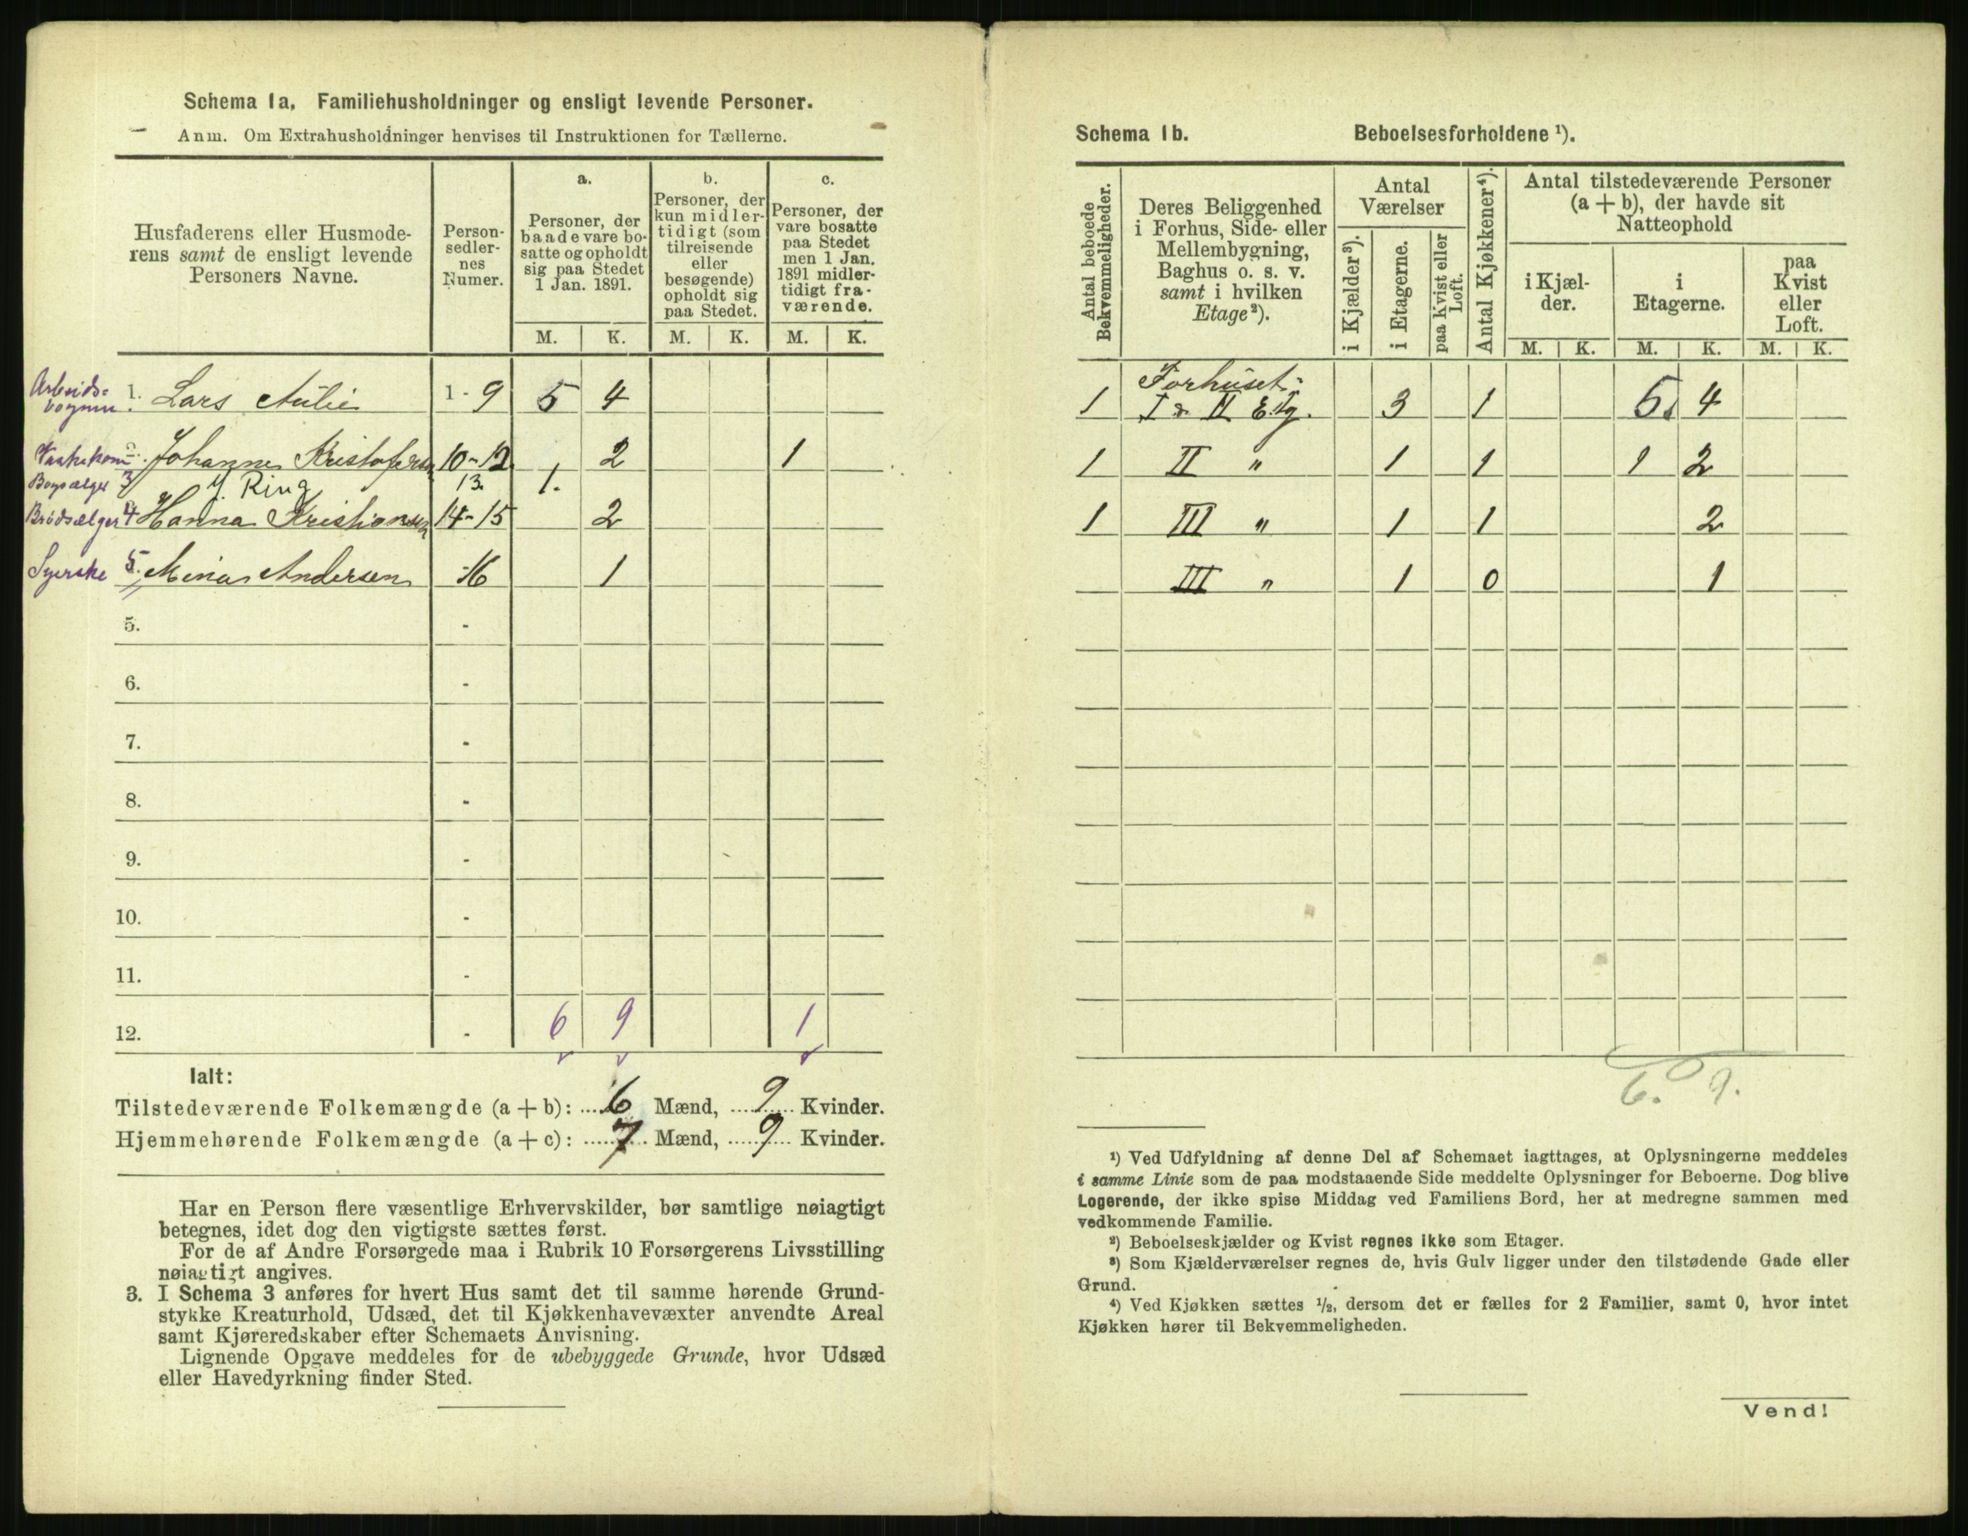 Schema 1a. Familiehusholdninger og ensligt levende Personer.
Anm. Om Extrahusholdninger henvises til Instruktionen for Tællerne.
Husfaderens eller Husmoderens samt de ensligt levende Personers Navne.
Personsedlernes Numer.
a.
Personer, der baade vare bosatte og opholdt sig paa Stedet 1 Jan. 1891.
b.
Personer, der kun midlertidigt (som tilreisende eller besøgende) opholdt sig paa Stedet.
c.
Personer, der vare bosatte paa Stedet men 1 Jan. 1891 midlertidigt fraværende.
M. K. M. K. M. K.
Arbeids=
1. Lars Aulie 1 - 9 5 4
Johannes Kristofersen 10-12 2 1
3 J. Ring 13. 1.
Brødsælger 4 Hanna Kristiansen 14-15 2
Syerske 5. Mina Andersen 16 1
5. -
6. -
7. -
8. -
9. -
10. -
11. -
12. - 6 9 1
Ialt:
Tilstedeværende Folkemængde (a + b): 6 Mænd, 9 Kvinder.
Hjemmehørende Folkemængde (a + c): 7 Mænd, 9 Kvinder.
Har en Person flere væsentlige Erhvervskilder, bør samtlige nøiagtigt
betegnes, idet dog den vigtigste sættes først.
For de af Andre Forsørgede maa i Rubrik 10 Forsørgerens Livsstilling
nøiagtigt angives.
3. I Schema 3 anføres for hvert Hus samt det til samme hørende Grund-
stykke Kreaturhold, Udsæd, det til Kjøkkenhavevæxter anvendte Areal
samt Kjøreredskaber efter Schemaets Anvisning.
Lignende Opgave meddeles for de ubebyggede Grunde, hvor Udsæd
eller Havedyrkning finder Sted.
Schema 1b. Beboelsesforholdene ¹).
Antal beboede Bekvemmeligheder.
Deres Beliggenhed i Forhus, Side- eller Mellembygning, Baghus o. s. v. samt i hvilken Etage²).
Antal Værelser
i Kjælder³).
i Etagerne.
paa Kvist eller Loft.
Antal Kjøkkener⁴).
Antal tilstedeværende Personer (a + b), der havde sit Natteophold
i Kjælder.
i Etagerne.
paa Kvist eller Loft.
M. K. M. K. M. K.
Forhuset:
1 I & II Etg. 3 1 5. 4
1 II " 1 1 1 2
1 III " 1 1 2
III " 1 0 1
6. 9.
¹) Ved Udfyldning af denne Del af Schemaet iagttages, at Oplysningerne meddeles
i samme Linie som de paa modstaaende Side meddelte Oplysninger for Beboerne. Dog blive
Logerende, der ikke spise Middag ved Familiens Bord, her at medregne sammen med
vedkommende Familie.
²) Beboelseskjælder og Kvist regnes ikke som Etager.
³) Som Kjælderværelser regnes de, hvis Gulv ligger under den tilstødende Gade eller
Grund.
⁴) Ved Kjøkken sættes ½, dersom det er fælles for 2 Familier, samt 0, hvor intet
Kjøkken hører til Bekvemmeligheden.
Vend!